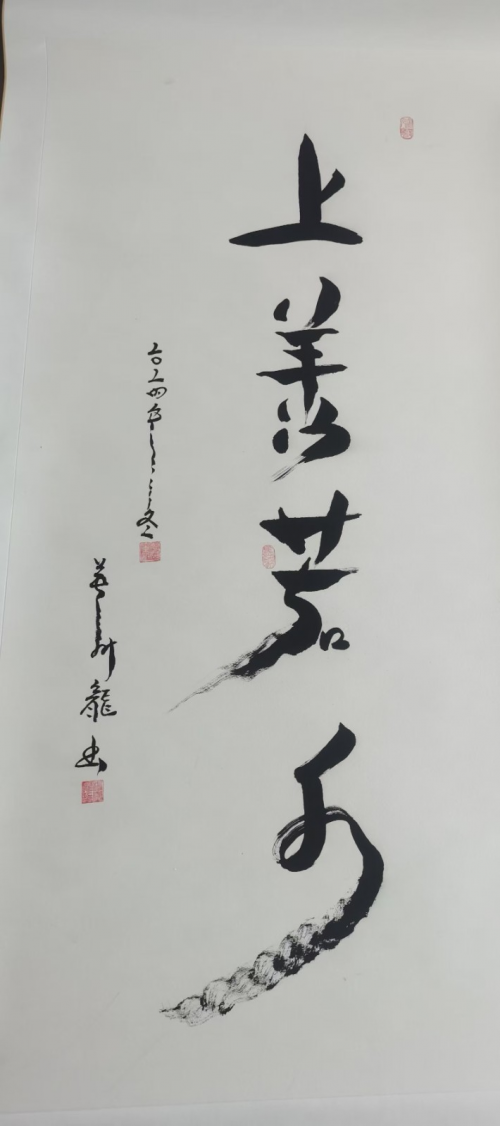 上善若水
二〇二四年之冬
龍書